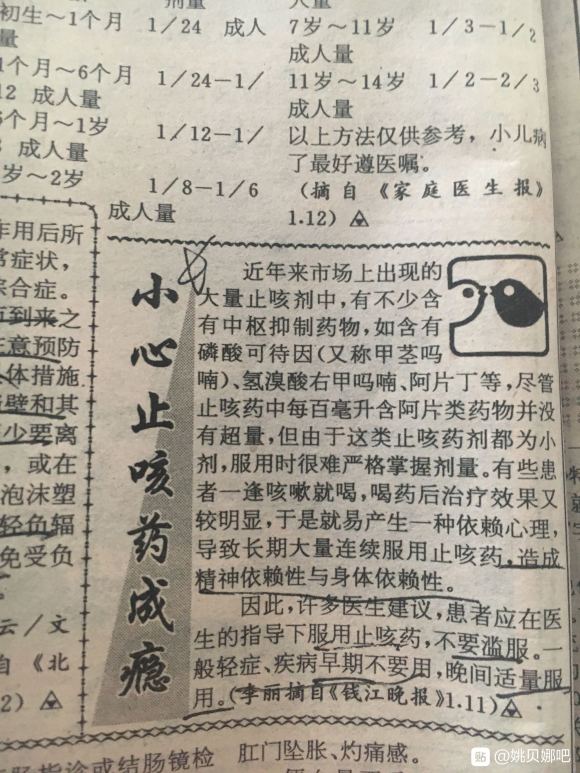 剂量
人量
初生～1个月 1/24 成人
量
1个月～6个月 1/24－1/
12 成人量
6个月～1岁 1/12－1/
8 成人量
岁～2岁 1/8－1/6
成人量
7岁～11岁 1/3－1/2
成人量
11岁～14岁 1/2－2/3
成人量
以上方法仅供参考，小儿病
了最好遵医嘱。
(摘自《家庭医生报》
1.12)
作用后所
常症状，
综合症。
到来之
注意预防
体措施
壁和其
少要离
，或在
泡沫塑
轻负辐
免受负
云/文
自《北
2)
小心止咳药成瘾
近年来市场上出现的
大量止咳剂中，有不少含
有中枢抑制药物，如含有
磷酸可待因(又称甲茎吗
喃)、氢溴酸右甲吗喃、阿片丁等，尽管
止咳药中每百毫升含阿片类药物并没
有超量，但由于这类止咳药剂都为小
剂，服用时很难严格掌握剂量。有些患
者一逢咳嗽就喝，喝药后治疗效果又
较明显，于是就易产生一种依赖心理，
导致长期大量连续服用止咳药，造成
精神依赖性与身体依赖性。
因此，许多医生建议，患者应在医
生的指导下服用止咳药，不要滥服。一
般轻症、疾病早期不要用，晚间适量服
用。(李丽摘自《钱江晚报》1.11)
肛指诊或结肠镜检
肛门坠胀、灼痛感。
贴 @姚贝娜吧